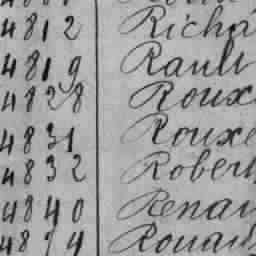 4812 Richa
4819 Rault
4828 Roux
4831 Rouxe
4832 Robert
4840 Renau
4874 Rouau